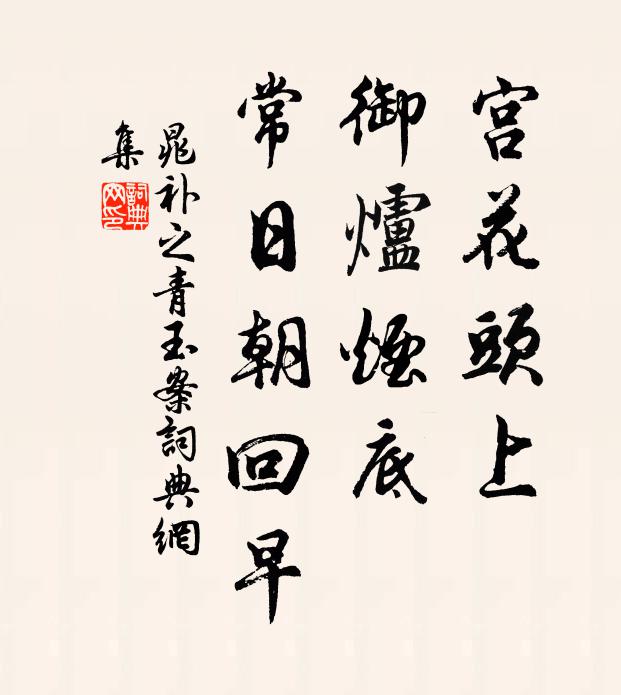 宮花頭上
御爐煙底
常日朝回早
晁补之青玉案詞典網
集
詞典
网印